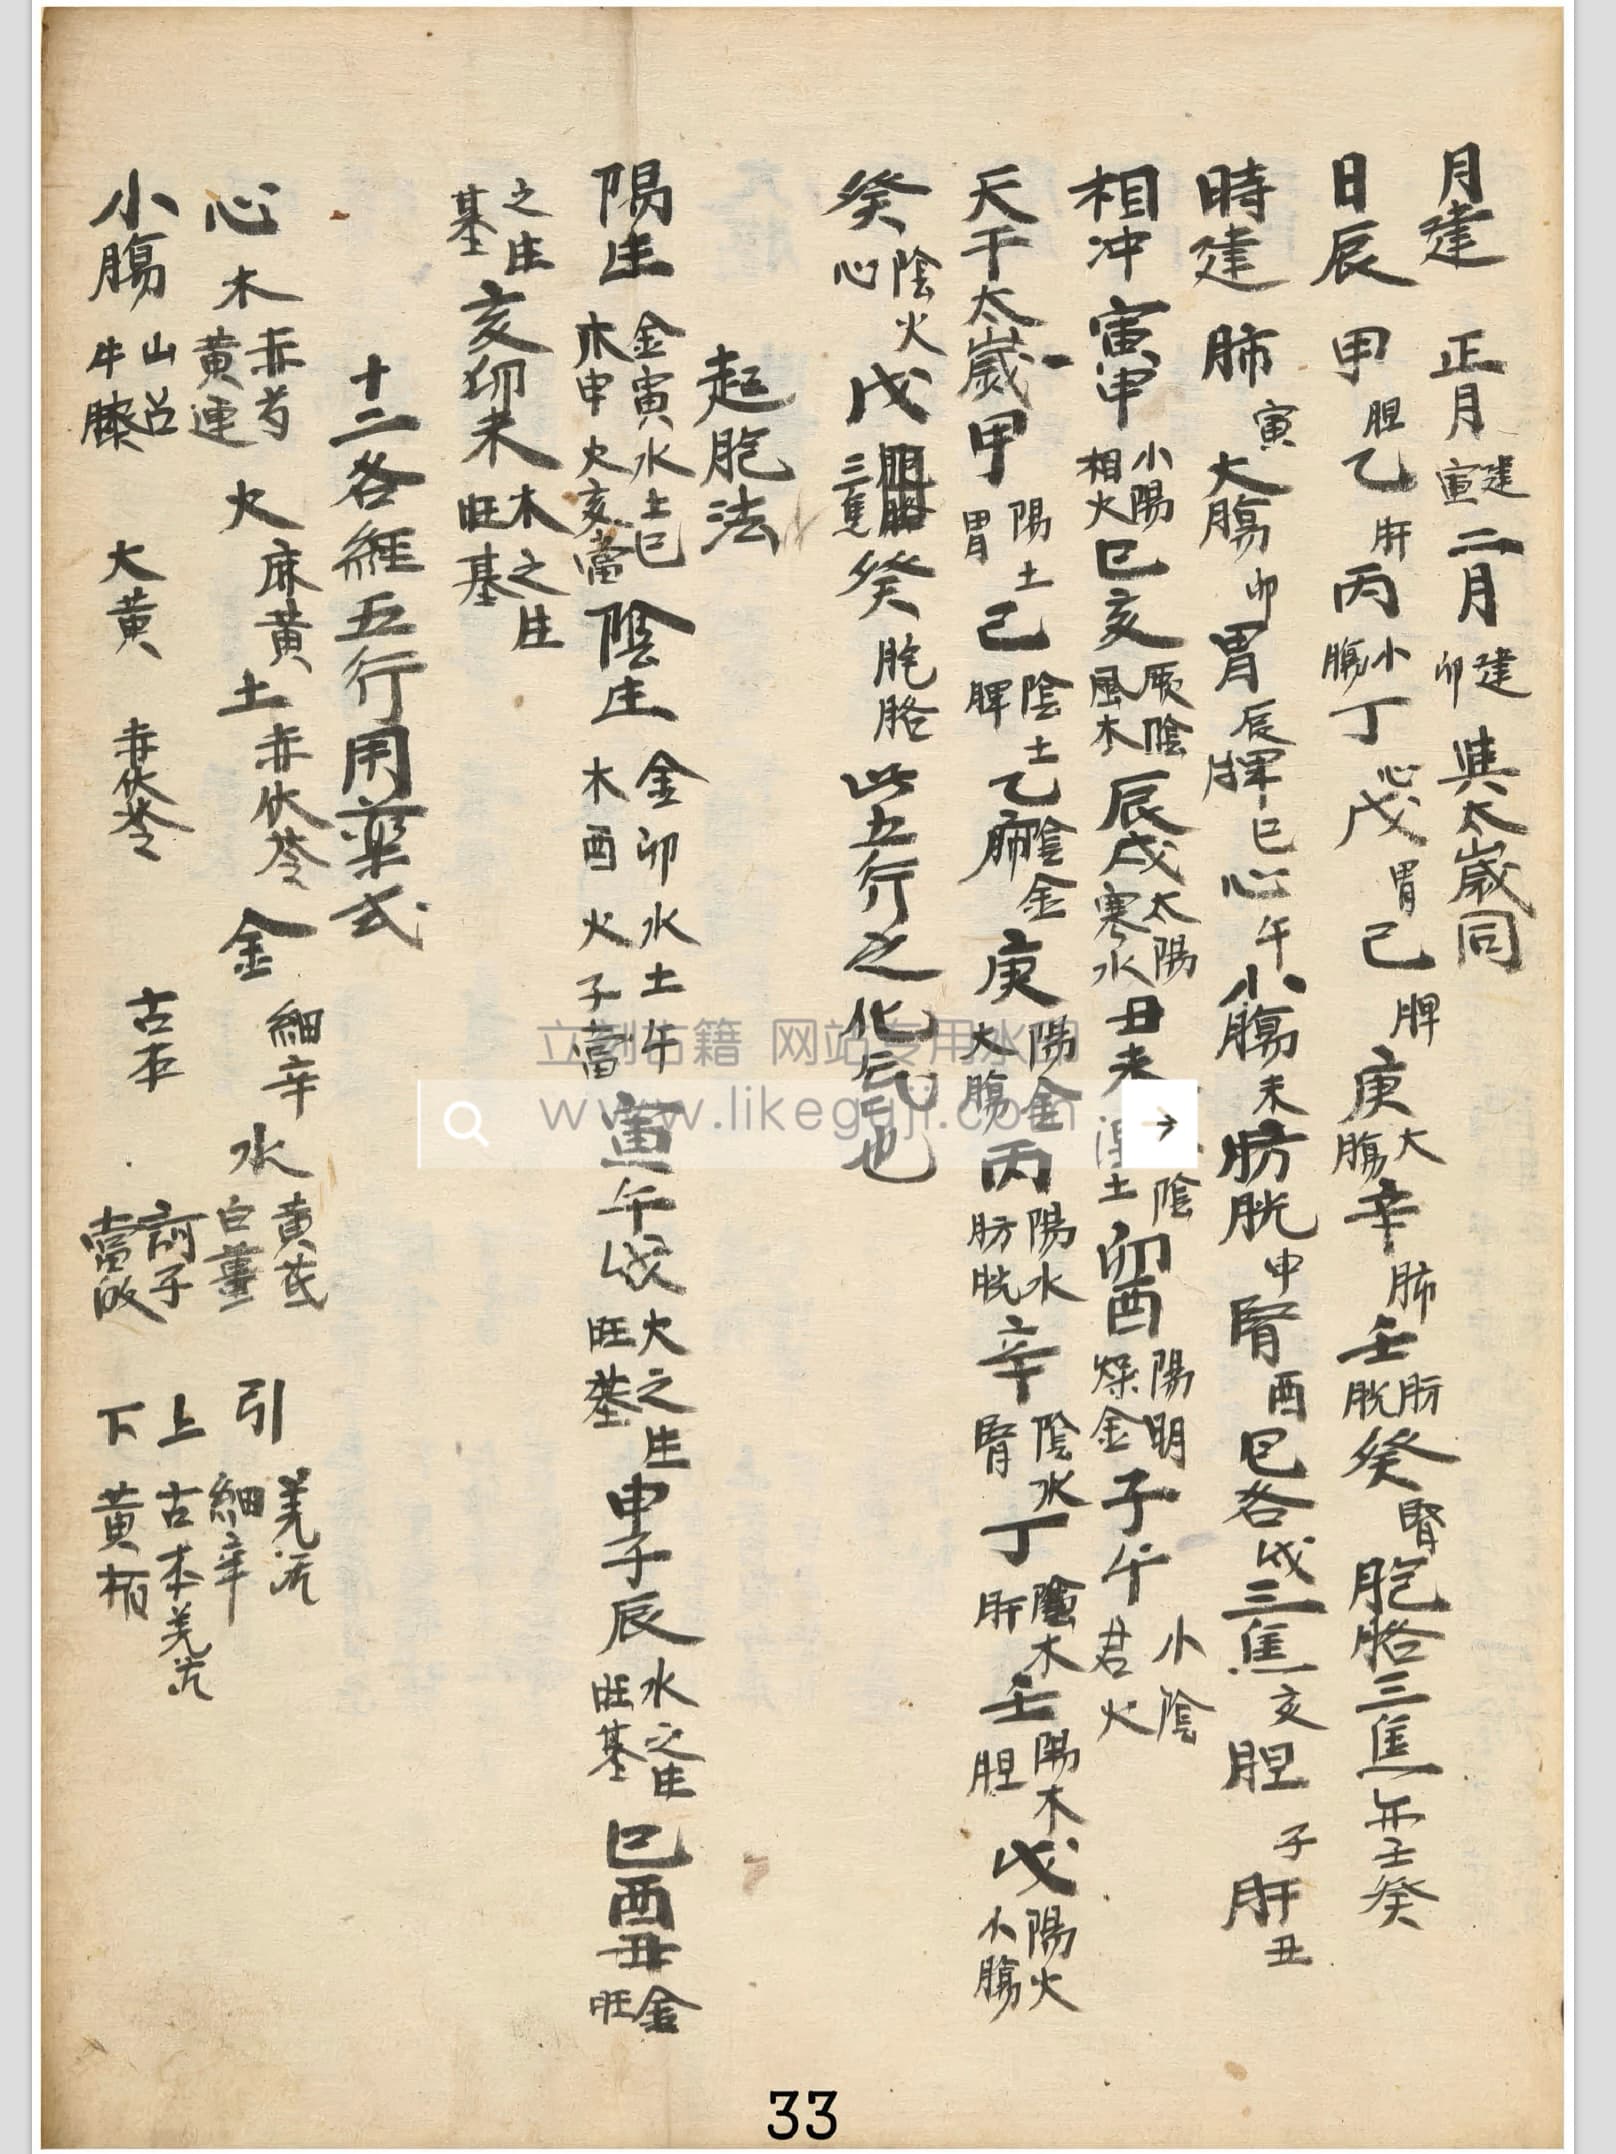 月建 正月建寅 二月建卯 與太歲同
日辰 甲胆乙肝丙小腸丁心戊胃己脾庚大腸辛肺壬肪胱癸腎胞胳三焦並壬癸
時建 肺寅大腸卯胃辰脾巳心午小腸未肪胱申腎酉胞各戌三焦亥胆子肝丑
相冲 寅申小陽相火巳亥厥陰風木辰戌太陽寒水丑未陰土卯酉陽明燥金子午小陰君火
天干太歲甲陽土胃己陰土脾乙陰金肺庚陽金大腸丙陽水肪胱辛陰水腎丁陰木肝壬陽木胆戊陽火小腸
癸陰火心戊三焦癸胞胳此五行之化气也
起胞法
陽生金寅水土巳木申火亥當陰生金卯水土午木酉火子當寅午戌火之生旺基申子辰水之生旺基巳酉丑金旺
之生基亥卯未木之生旺基
十二各經五行用藥式
心 木赤芍黄連 火麻黄土赤伏苓金細辛水黄芪白薑 引羌活細辛
小腸 山呂牛膝 大黄 赤伏苓 古本 訶子當歸 上古本羌活下黄柏
立刻古籍 网站专用水印
www.likeguji.com
33